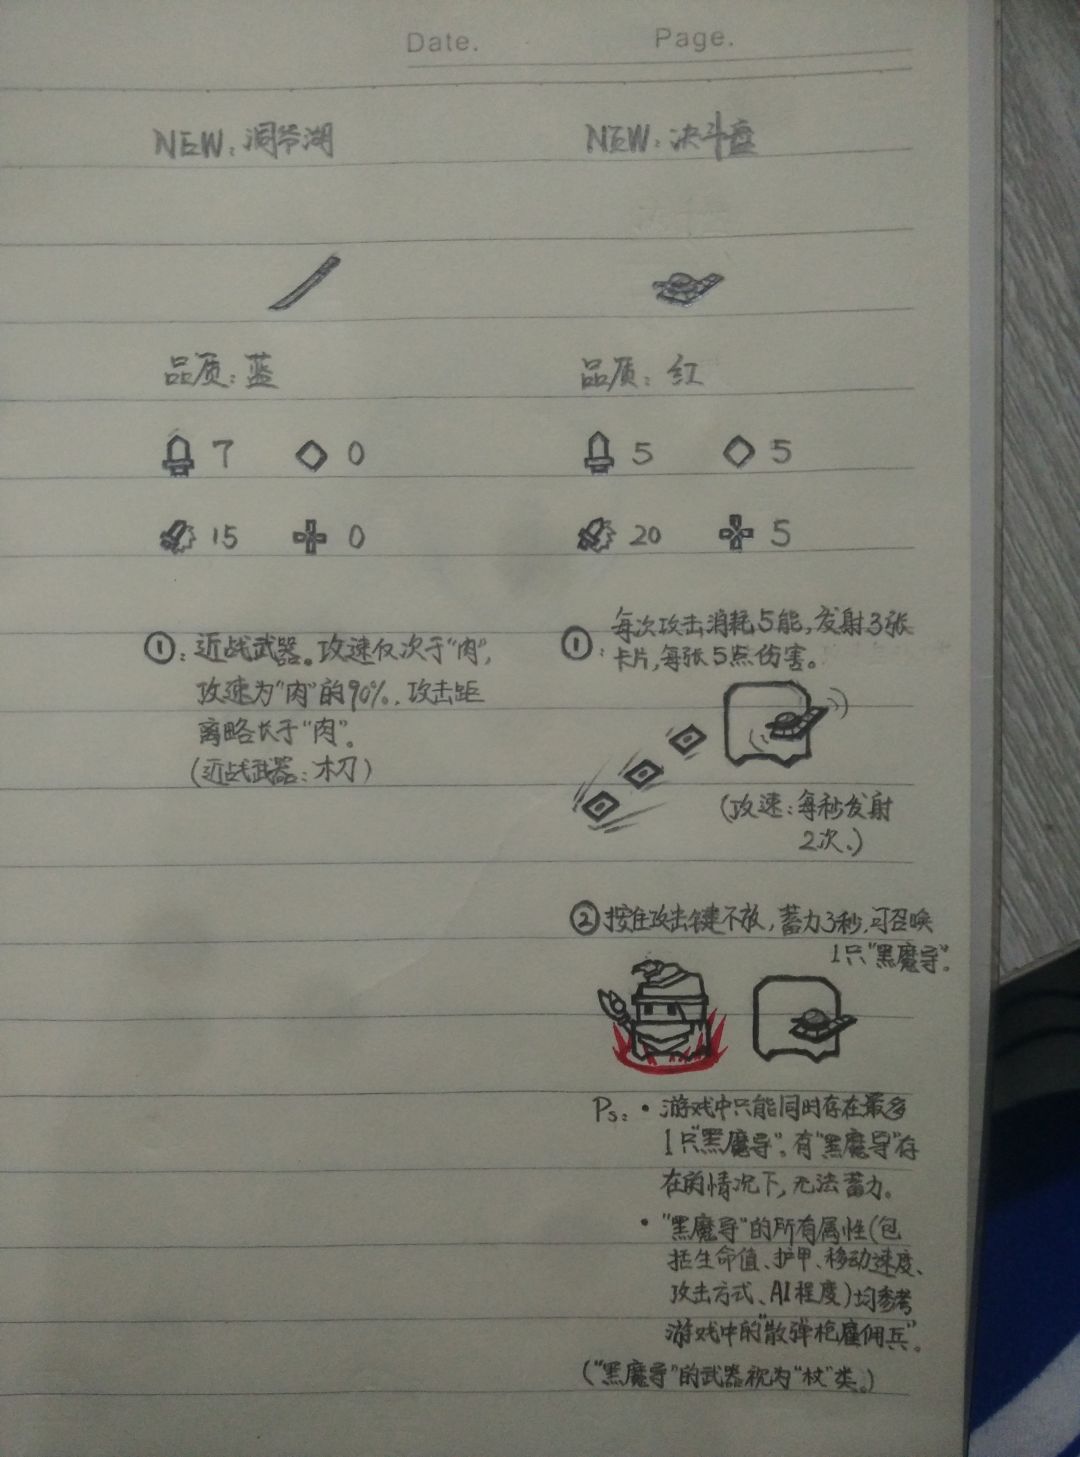 Date. Page.
NEW:洞爷湖
品质:蓝
7 0
15 0
①:近战武器。攻速仅次于“肉”,
攻速为“肉”的90%.攻击距
离略长于“肉”。
(近战武器:木刀)
NEW:决斗盘
品质:红
5 5
20 5
①:每次攻击消耗5能,发射3张
卡片,每张5点伤害。
(攻速:每秒发射
2次、)
②按住攻击键不放,蓄力3秒,可召唤
1只“黑魔导”。
Ps:·游戏中只能同时存在最多
1只“黑魔导”。有“黑魔导”存
在的情况下,无法蓄力。
·“黑魔导”的所有属性(包
括生命值、护甲、移动速度、
攻击方式、AI程度)均参考
游戏中的“散弹枪雇佣兵”。
(“黑魔导”的武器视为“杖”类。)